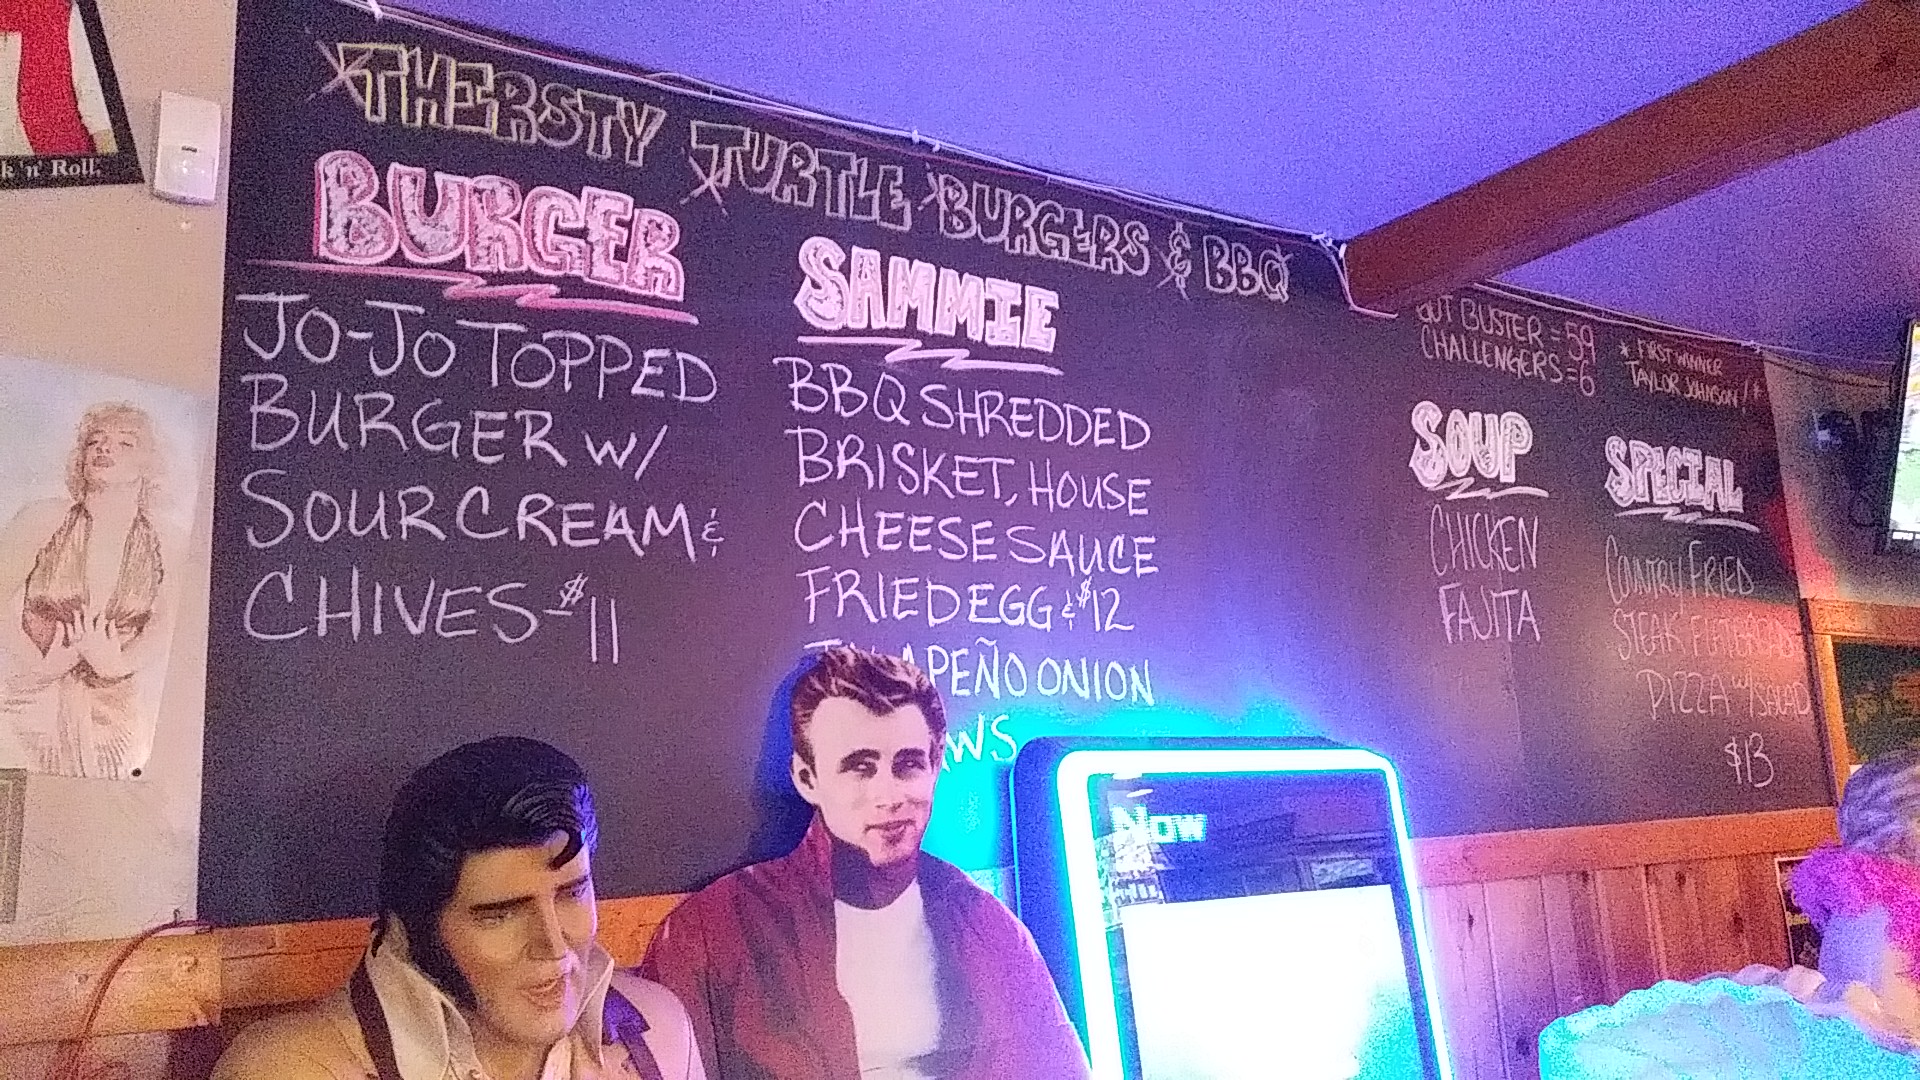 k 'n' Roll.
THIRSTY TURTLE BURGERS & BBQ
BURGER
JO-JO TOPPED
BURGER W/
SOUR CREAM &
CHIVES - $11
SAMMIE
BBQ SHREDDED
BRISKET, HOUSE
CHEESE SAUCE
FRIED EGG & $12
PEÑO ONION
WS
BUSTER = 59
CHALLENGERS = 6
* FIRST WINNER
TAYLOR JOHNSON!
SOUP
CHICKEN
FAJITA
SPECIAL
COUNTRY FRIED
STEAK FLATBREAD
PIZZA W/ SALAD
$13
Now